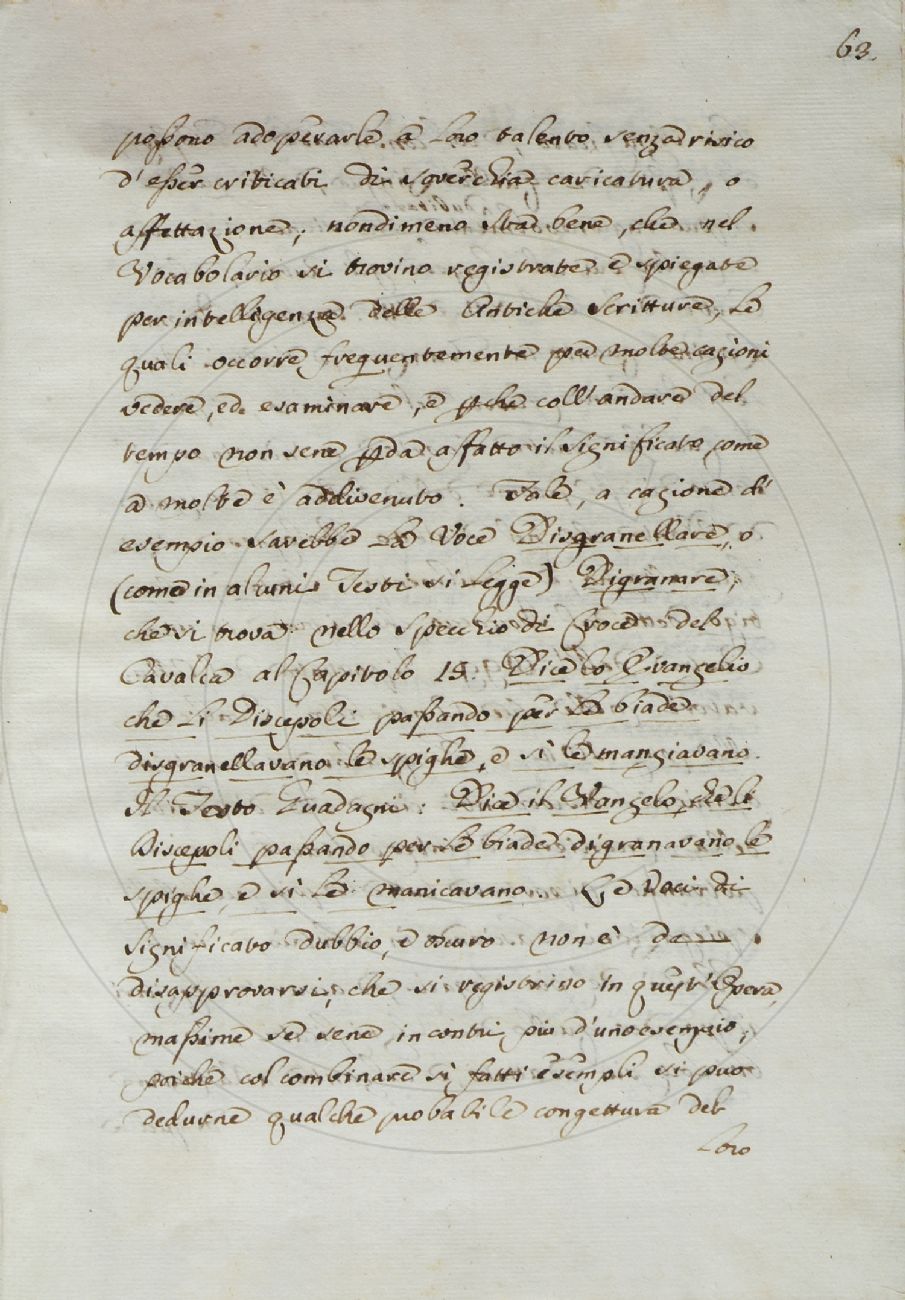 63.
possono adoperarle a loro talento senza risico
d'esser criticati di soverchia caricatura, o
affettazione; nondimeno sta bene, che nel
Vocabolario si trovino registrate e spiegate
per intelligenza delle Antiche Scritture, le
quali occorre frequentemente per molte cagioni
vedere, ed esaminare, e pchè coll'andare del
tempo non sene pda affatto il significato, come
a molte è addivenuto. Tale, a cagione di
esempio sarebbe la Voce Disgranellare, o
(come in alcuni Testi si legge) Digranare,
che si trova nello specchio di Croce del
Cavalca al Capitolo 19. Dice lo Evangelio
che li Discepoli passando per le biade
disgranellavano le spighe, e si le mangiavano.
Il Testo Guadagni: Dice il Vangelo, che li
Discepoli passando per le biade digranavano le
spighe, e si le manicavano. Le Voci di
significato dubbio, e oscuro non è da
disapprovarsi, che si registrino in quest'Opera,
massime se sene incontri più d'uno esempio,
poichè col combinare sì fatti esempli si può
dedurne qualche probabile congettura del
loro